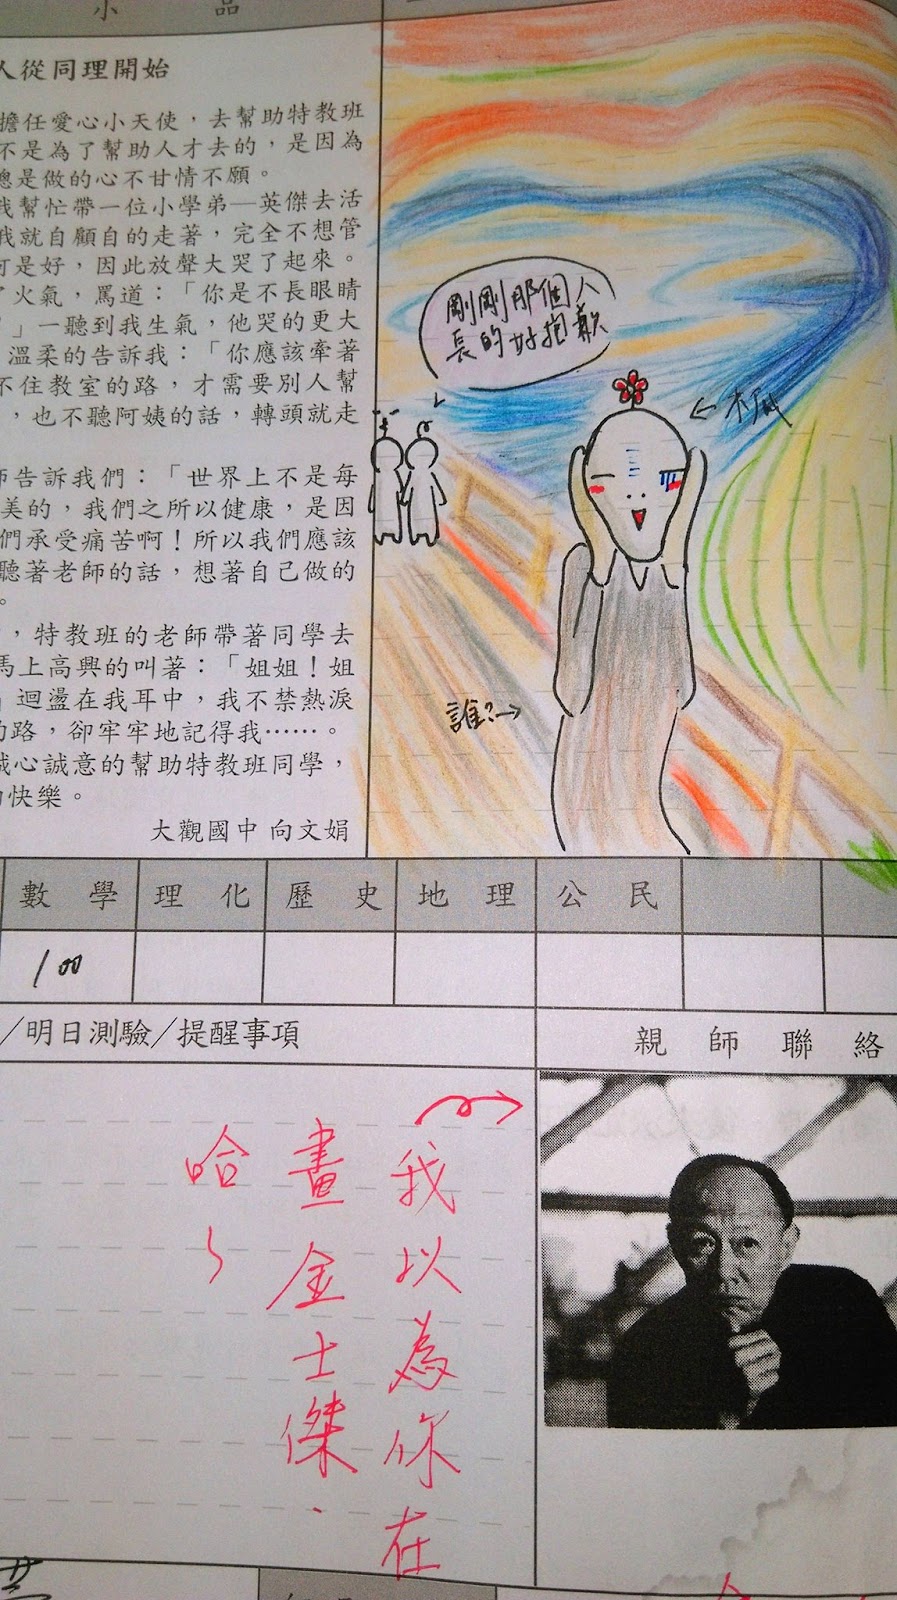 小品
人從同理開始
擔任愛心小天使，去幫助特教班
不是為了幫助人才去的，是因為
總是做的心不甘情不願。
我幫忙帶一位小學弟─英傑去活
我就自顧自的走著，完全不想管
可是好，因此放聲大哭了起來。
了火氣，罵道：「你是不長眼睛
」一聽到我生氣，他哭的更大
溫柔的告訴我：「你應該牽著
不住教室的路，才需要別人幫
，也不聽阿姨的話，轉頭就走
師告訴我們：「世界上不是每
美的，我們之所以健康，是因
們承受痛苦啊！所以我們應該
聽著老師的話，想著自己做的
。
，特教班的老師帶著同學去
馬上高興的叫著：「姐姐！姐
」迴盪在我耳中，我不禁熱淚
的路，卻牢牢地記得我……。
誠心誠意的幫助特教班同學，
的快樂。
大觀國中 向文娟
剛剛那個人
長的好抱歉
誰?→
數學 理化 歷史 地理 公民
100
／明日測驗／提醒事項
親師聯絡
我以為你在
畫金士傑．
哈～